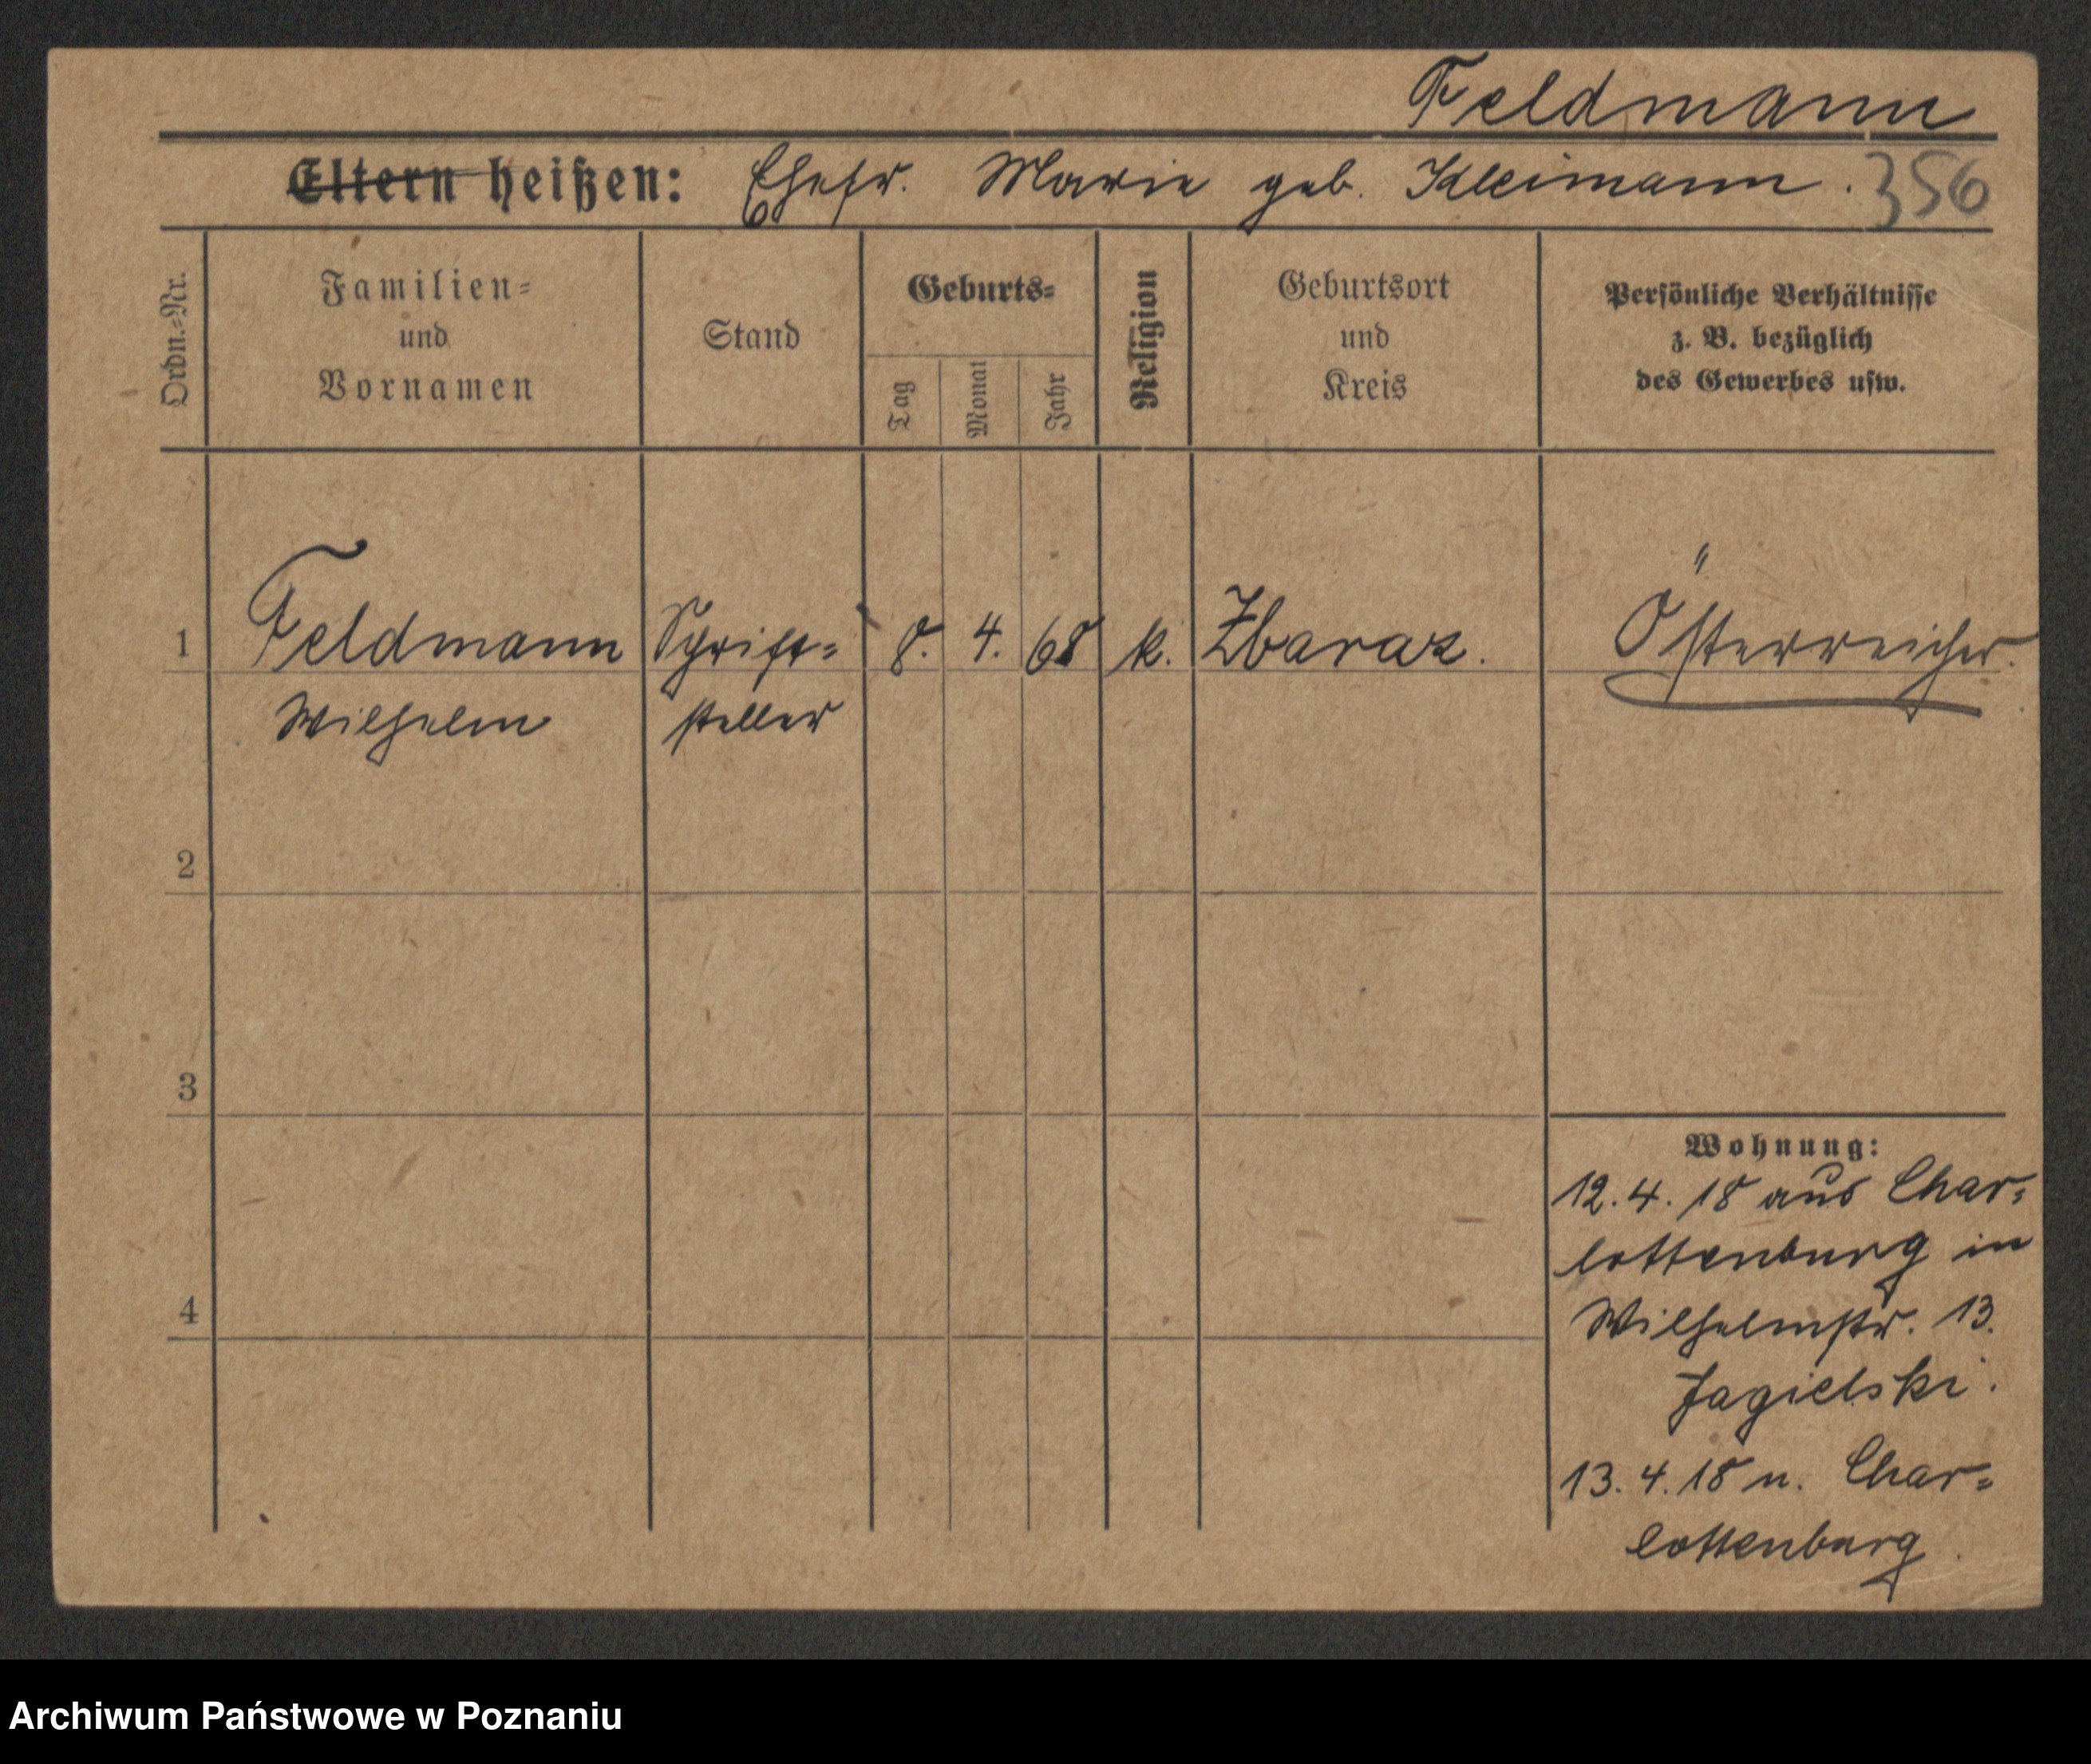 Feldmann
Eltern heißen: Ehefr. Marie geb. Kleimann. 356
Ordn.=Nr.
Familien=
und
Vornamen
Stand
Geburts=
Tag
Monat
Jahr
Religion
Geburtsort
und
Kreis
Persönliche Verhältnisse
z. B. bezüglich
des Gewerbes usw.
1 Feldmann Schrift= 8. 4. 68 k. Zbaraz. Österreicher.
Wilhelm steller
2
3
4
Wohnung:
12.4.18 aus Char=
lottenburg in
Wilhelmstr. 13.
Jagielski.
13.4.18 n. Char=
lottenburg
Archiwum Państwowe w Poznaniu